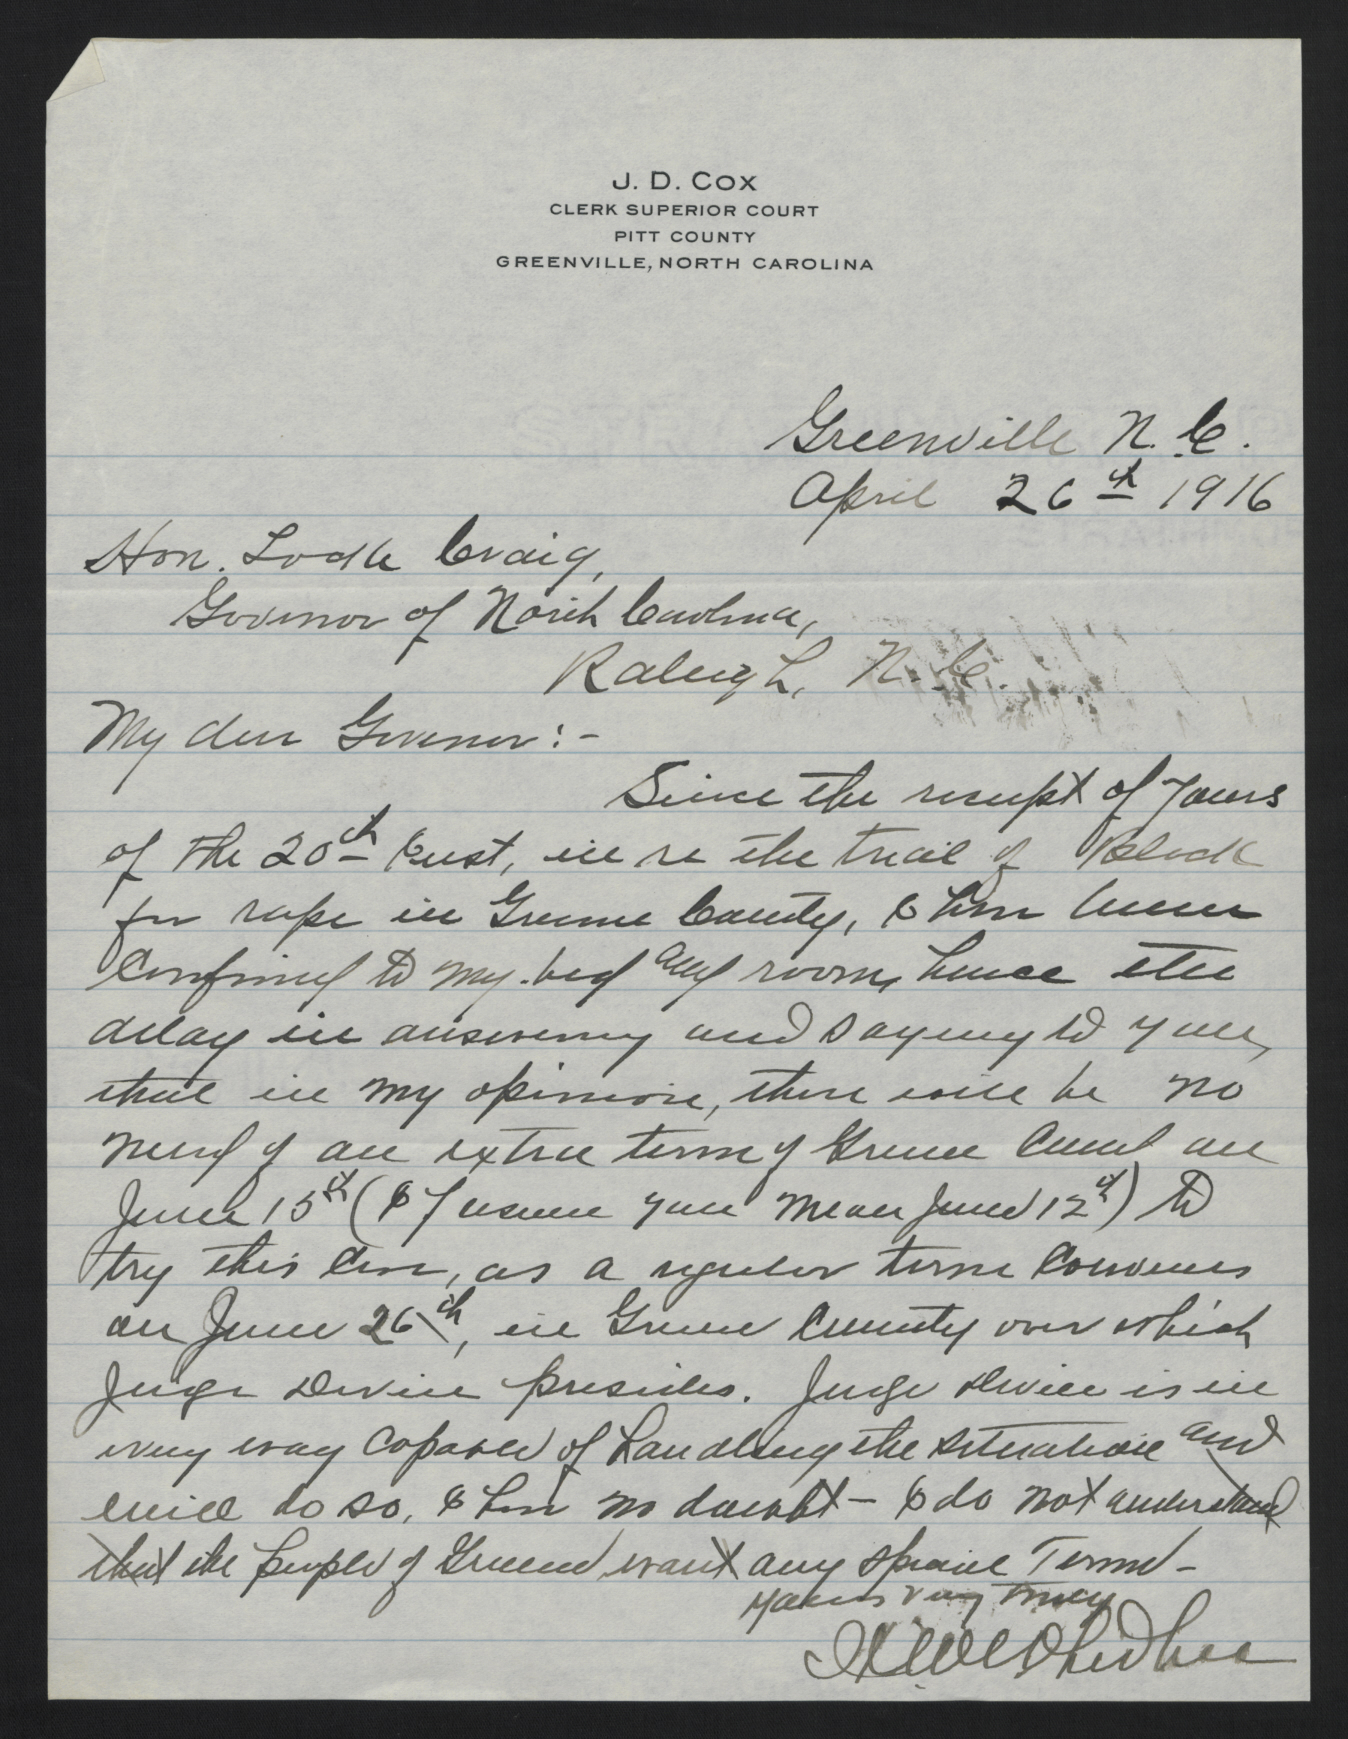 J. D. COX
CLERK SUPERIOR COURT
PITT COUNTY
GREENVILLE, NORTH CAROLINA
Greenville N. C.
April 26th 1916
Hon. Locke Craig,
Governor of North Carolina,
Raleigh, N. C.
My dear Governor:-
Since the receipt of yours
of the 20th Inst, in re the trial of Black
for rape in Greene County, I have been
confined to my bed and room, hence the
delay in answering and saying to you,
that in my opinion, there will be no
need of an extra term of Greene Court on
June 15th (I presume you mean June 12th) to
try this case, as a regular term convenes
on June 26th, in Greene County over which
Judge Devin presides. Judge Devin is in
every way capable of handling the situation and
will do so, I have no doubt - I do not understand
that the people of Greene want any special Term -
Yours very truly